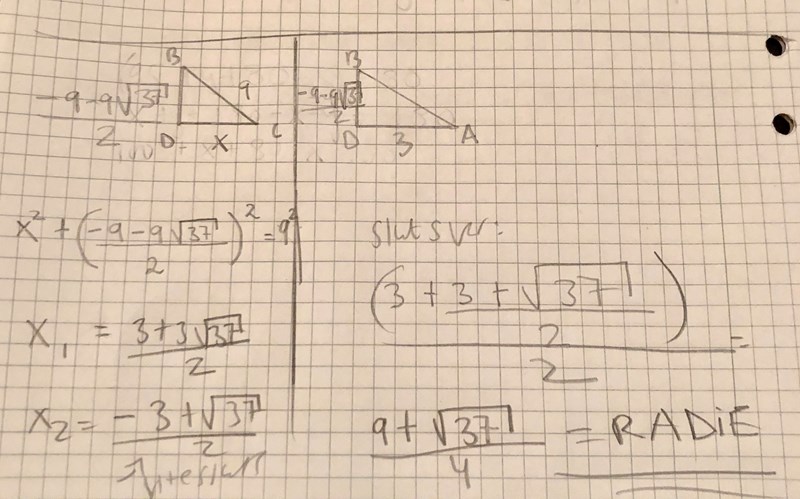 B
B
9
(-9-9√37)/2
(-9-9√37)/2
D x C
D 3 A
x² + ((-9-9√37)/2)² = 9²
x₁ = (3+3√37)/2
x₂ = (-3+√37)/2
slutsvr:
(3 + (3+√37)/2)/2 =
(9+√37)/4 = RADiE